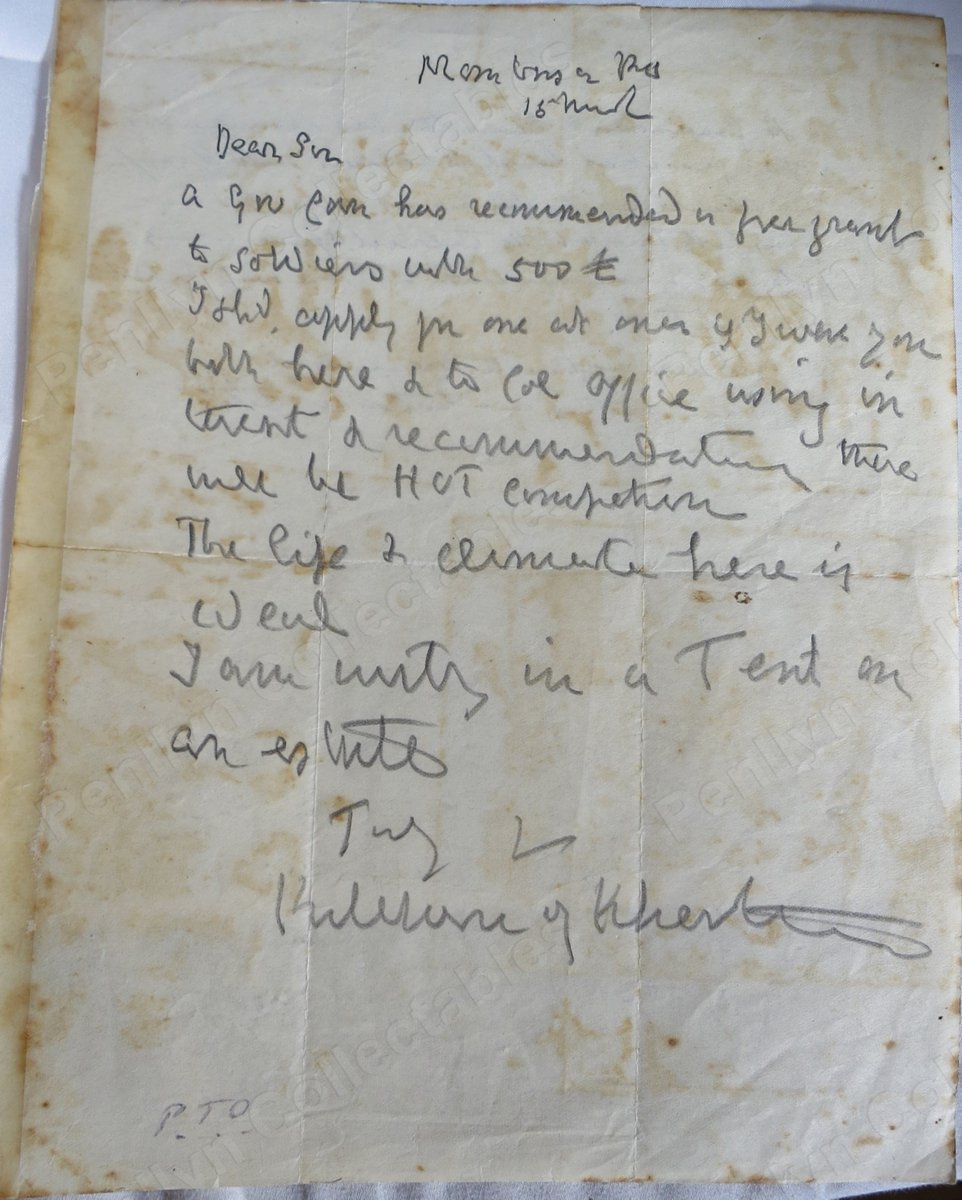 Mombasa
15
Dear Sir
A Gov Com has recommended a free grant
to soldiers with 500 £
I shd. apply for one at once if I were you
both here & to Col Office using in
terest & recommendation there
will be HOT competition
The life & climate here is
ideal
I am writing in a Tent on
an estate
Truly
of
P.T.O
Penllyn Collectables